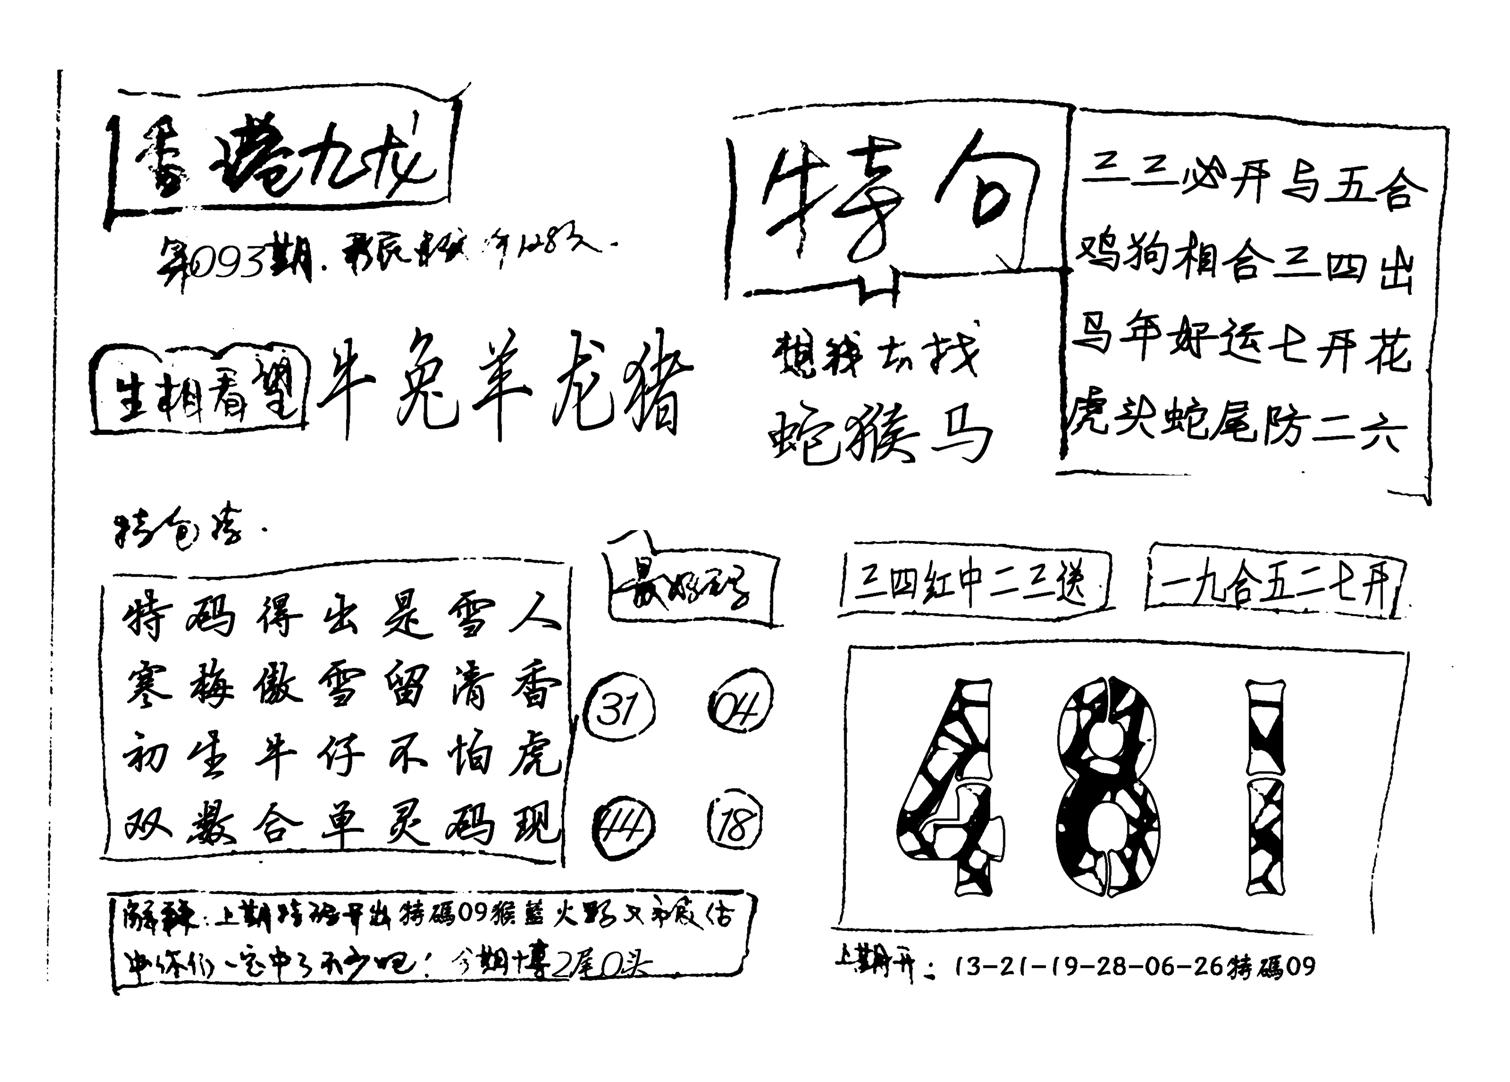 香港九龙
第093期.
生相看望 牛兔羊龙猪
特句
三三必开马五合
鸡狗相合三四出
马年好运七开花
虎头蛇尾防二六
想钱去找
蛇猴马
特码得出是雪人
寒梅傲雪留清香
初生牛仔不怕虎
双数合单灵码现
最好码
31 04
44 18
三四红中二三送
一九合五二七开
481
解释:上期特码开出特碼09猴藍火野
你们一定中了不少吧!今期博2尾0头
上期开: 13-21-19-28-06-26特碼09